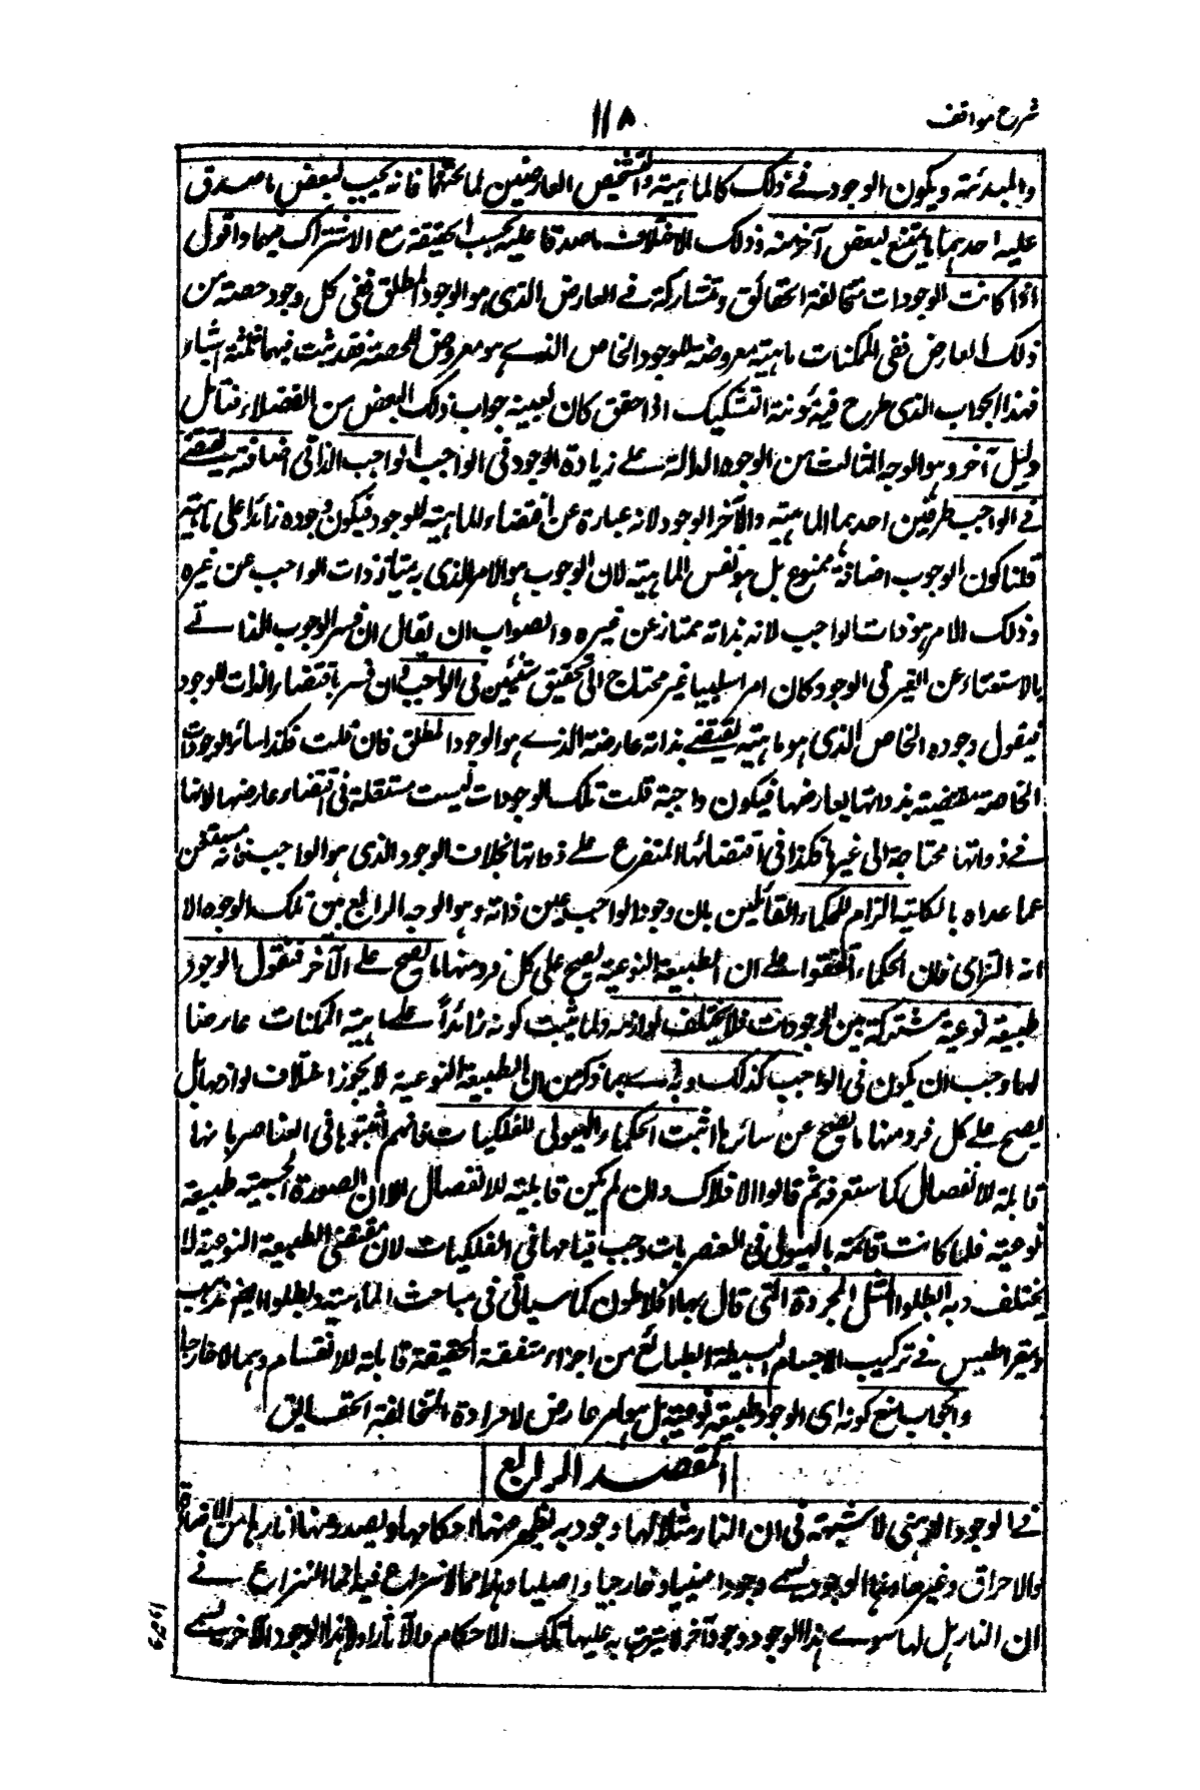 شرح مواقف
١١٨
والمبدئية ويكون الوجود في ذلك كالماهية والتشخص العارضين لما تحتهما فانه يجب لبعض ما صدق
عليه احدهما ما يمتنع لبعض آخر منه وذلك لاختلاف ما صدقا عليه بحسب الحقيقة مع الاشتراك فيهما واقول
اذا كانت الوجودات متخالفة الحقائق ومتشاركة في العارض الذي هو الوجود المطلق ففي كل وجود حصة من
ذلك العارض ففي الممكنات ماهية معروضة للوجود الخاص الذي هو معروض للحصة فقد ثبت فيها ثلثة اشياء
فهذا الجواب الذي طرح فيه مؤنة التشكيك اذا حقق كان بعينه جواب ذلك البعض من الفضلاء فتأمل
دليل آخر وهو الوجه الثالث من الوجوه الدالة على زيادة الوجود في الواجب الواجب الذاتي اضافة يقتضي
في الواجب طرفين احدهما الماهية والآخر الوجود لانه عبارة عن اقتضاء الماهية للوجود فيكون وجوده زائدا على ماهيته
قلنا كون الوجوب اضافة ممنوع بل هو نفس الماهية لان الوجوب هو الامر الذي به يمتاز ذات الواجب عن غيره
وذلك الامر هو ذات الواجب لانه بذاته ممتاز عن غيره والصواب ان يقال ان فسر الوجوب الذاتي
بالاستغناء عن الغير في الوجود كان امرا سلبيا غير محتاج الى تحقيق شيئين في الواجب وان فسر باقتضاء الذات للوجود
فيقول وجوده الخاص الذي هو ماهيته يقتضي بذاته عارضه الذي هو الوجود المطلق فان قلت فكذا سائر الوجودات
الخاصة مقتضية بذواتها لعارضها فيكون واجبة قلت تلك الوجودات ليست مستقلة في اقتضاء عارضها لانها
في ذواتها محتاجة الى غيرها فكذا في اقتضائها المتفرع على ذواتها بخلاف الوجود الذي هو الواجب فانه مستغن
عما عداه بالكلية الزام للحكماء القائلين بان وجود الواجب عين ذاته وهو الوجه الرابع من تلك الوجوه الا
انه الزامي فان الحكماء اتفقوا على ان الطبيعة النوعية يصح على كل فرد منها ما يصح على الآخر فنقول الوجود
طبيعة نوعية مشتركة بين الوجودات فلا يختلف لوازمه ولما ثبت كونه زائداً على ماهية الممكنات عارضا
لها وجب ان يكون في الواجب كذلك وبهذا اي بما ذكر من ان الطبيعة النوعية لا يجوز اختلاف لوازمها بل
يصح على كل فرد منها ما يصح عن سائرها اثبت الحكماء الهيولى للفلكيات فانهم اثبتوها في العناصر بانها
قابلة للانفصال كما ستعرفه ثم قالوا الافلاك وان لم يكن قابلية للانفصال الا ان الصورة الجسمية طبيعة
نوعية فلما كانت قائمة بالهيولى في العنصريات وجب قيامها في الفلكيات لان مقتضى الطبيعة النوعية لا
يختلف وبه ابطلوا المثل المجردة التي قال بها افلاطون كما سياتي في مباحث الماهية وابطلوا ايضا مذهب
ديمقراطيس في تركيب الاجسام البسيطة الطبائع من اجزاء متفقة الحقيقة قابلة للانقسام وهما لا خارجا
والجواب منع كونه اي الوجود طبيعة نوعية بل هو امر عارض لافراده المتخالفة الحقائق
المقصد الرابع
في الوجود الذهني لا شبهة في ان النار مثلا لها وجود به يظهر منها احكامها ويصدر عنها آثارها من الاضاءة
والاحراق وغيرهما وهذا الوجود يسمى وجودا عينيا وخارجيا واصليا وهذا مما لا نزاع فيه انما النزاع في
ان النار هل لها سوى هذا الوجود وجود آخر لا يترتب به عليها تلك الاحكام والآثار او لا وهذا الوجود الآخر يسمى